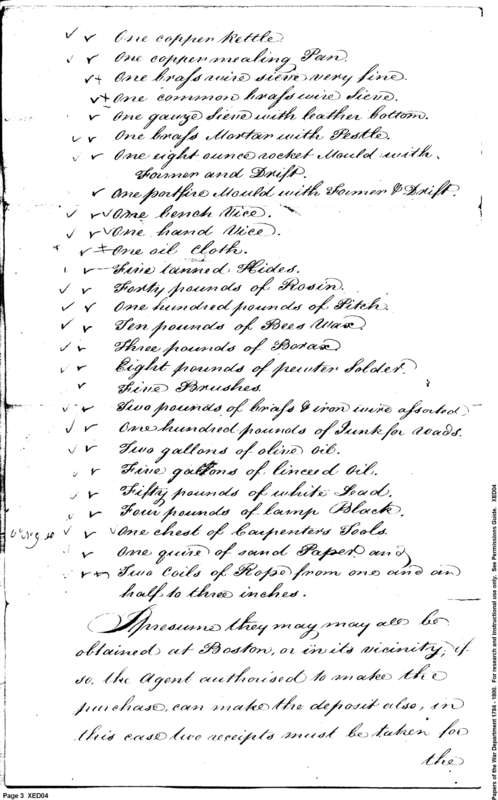 One copper kettle
One copper mealing Pan.
One brass wire sieve very fine.
One common brass wire Sieve.
One gauze sieve with leather bottom.
One brass Mortar with Pestle
One eight ounce rocket Mould with.
Former and Drift.
One portfire Mould with Former & Drift.
One bench Vice.
One hand Vice.
One oil Cloth.
Five tanned Hides.
Forty pounds of Rosin.
One hundred pounds of Pitch.
Ten pounds of Bees Wax
Three pounds of Borax
Eight pounds of pewter Solder.
Five Brushes
Two pounds of brass & iron wire assorted
One hundred pounds of Junk for wads.
Two gallons of olive Oil.
Five gallons of linceed Oil.
Fifty pounds of white Lead.
Four pounds of lamp Black.
One chest of Carpenters Tools.
One quire of sand Paper and
Two Coils of Rope from one and an
half to three inches.
I presume they may may all be
obtained at Boston, or in its vicinity, if
so, the Agent authorised to make the
purchase, can make the deposit also, in
this case two receipts must be taken for
the
Page 3 XED04
Papers of the War Department 1784 - 1800. For research and instructional use only. See Permissions Guide. XED04